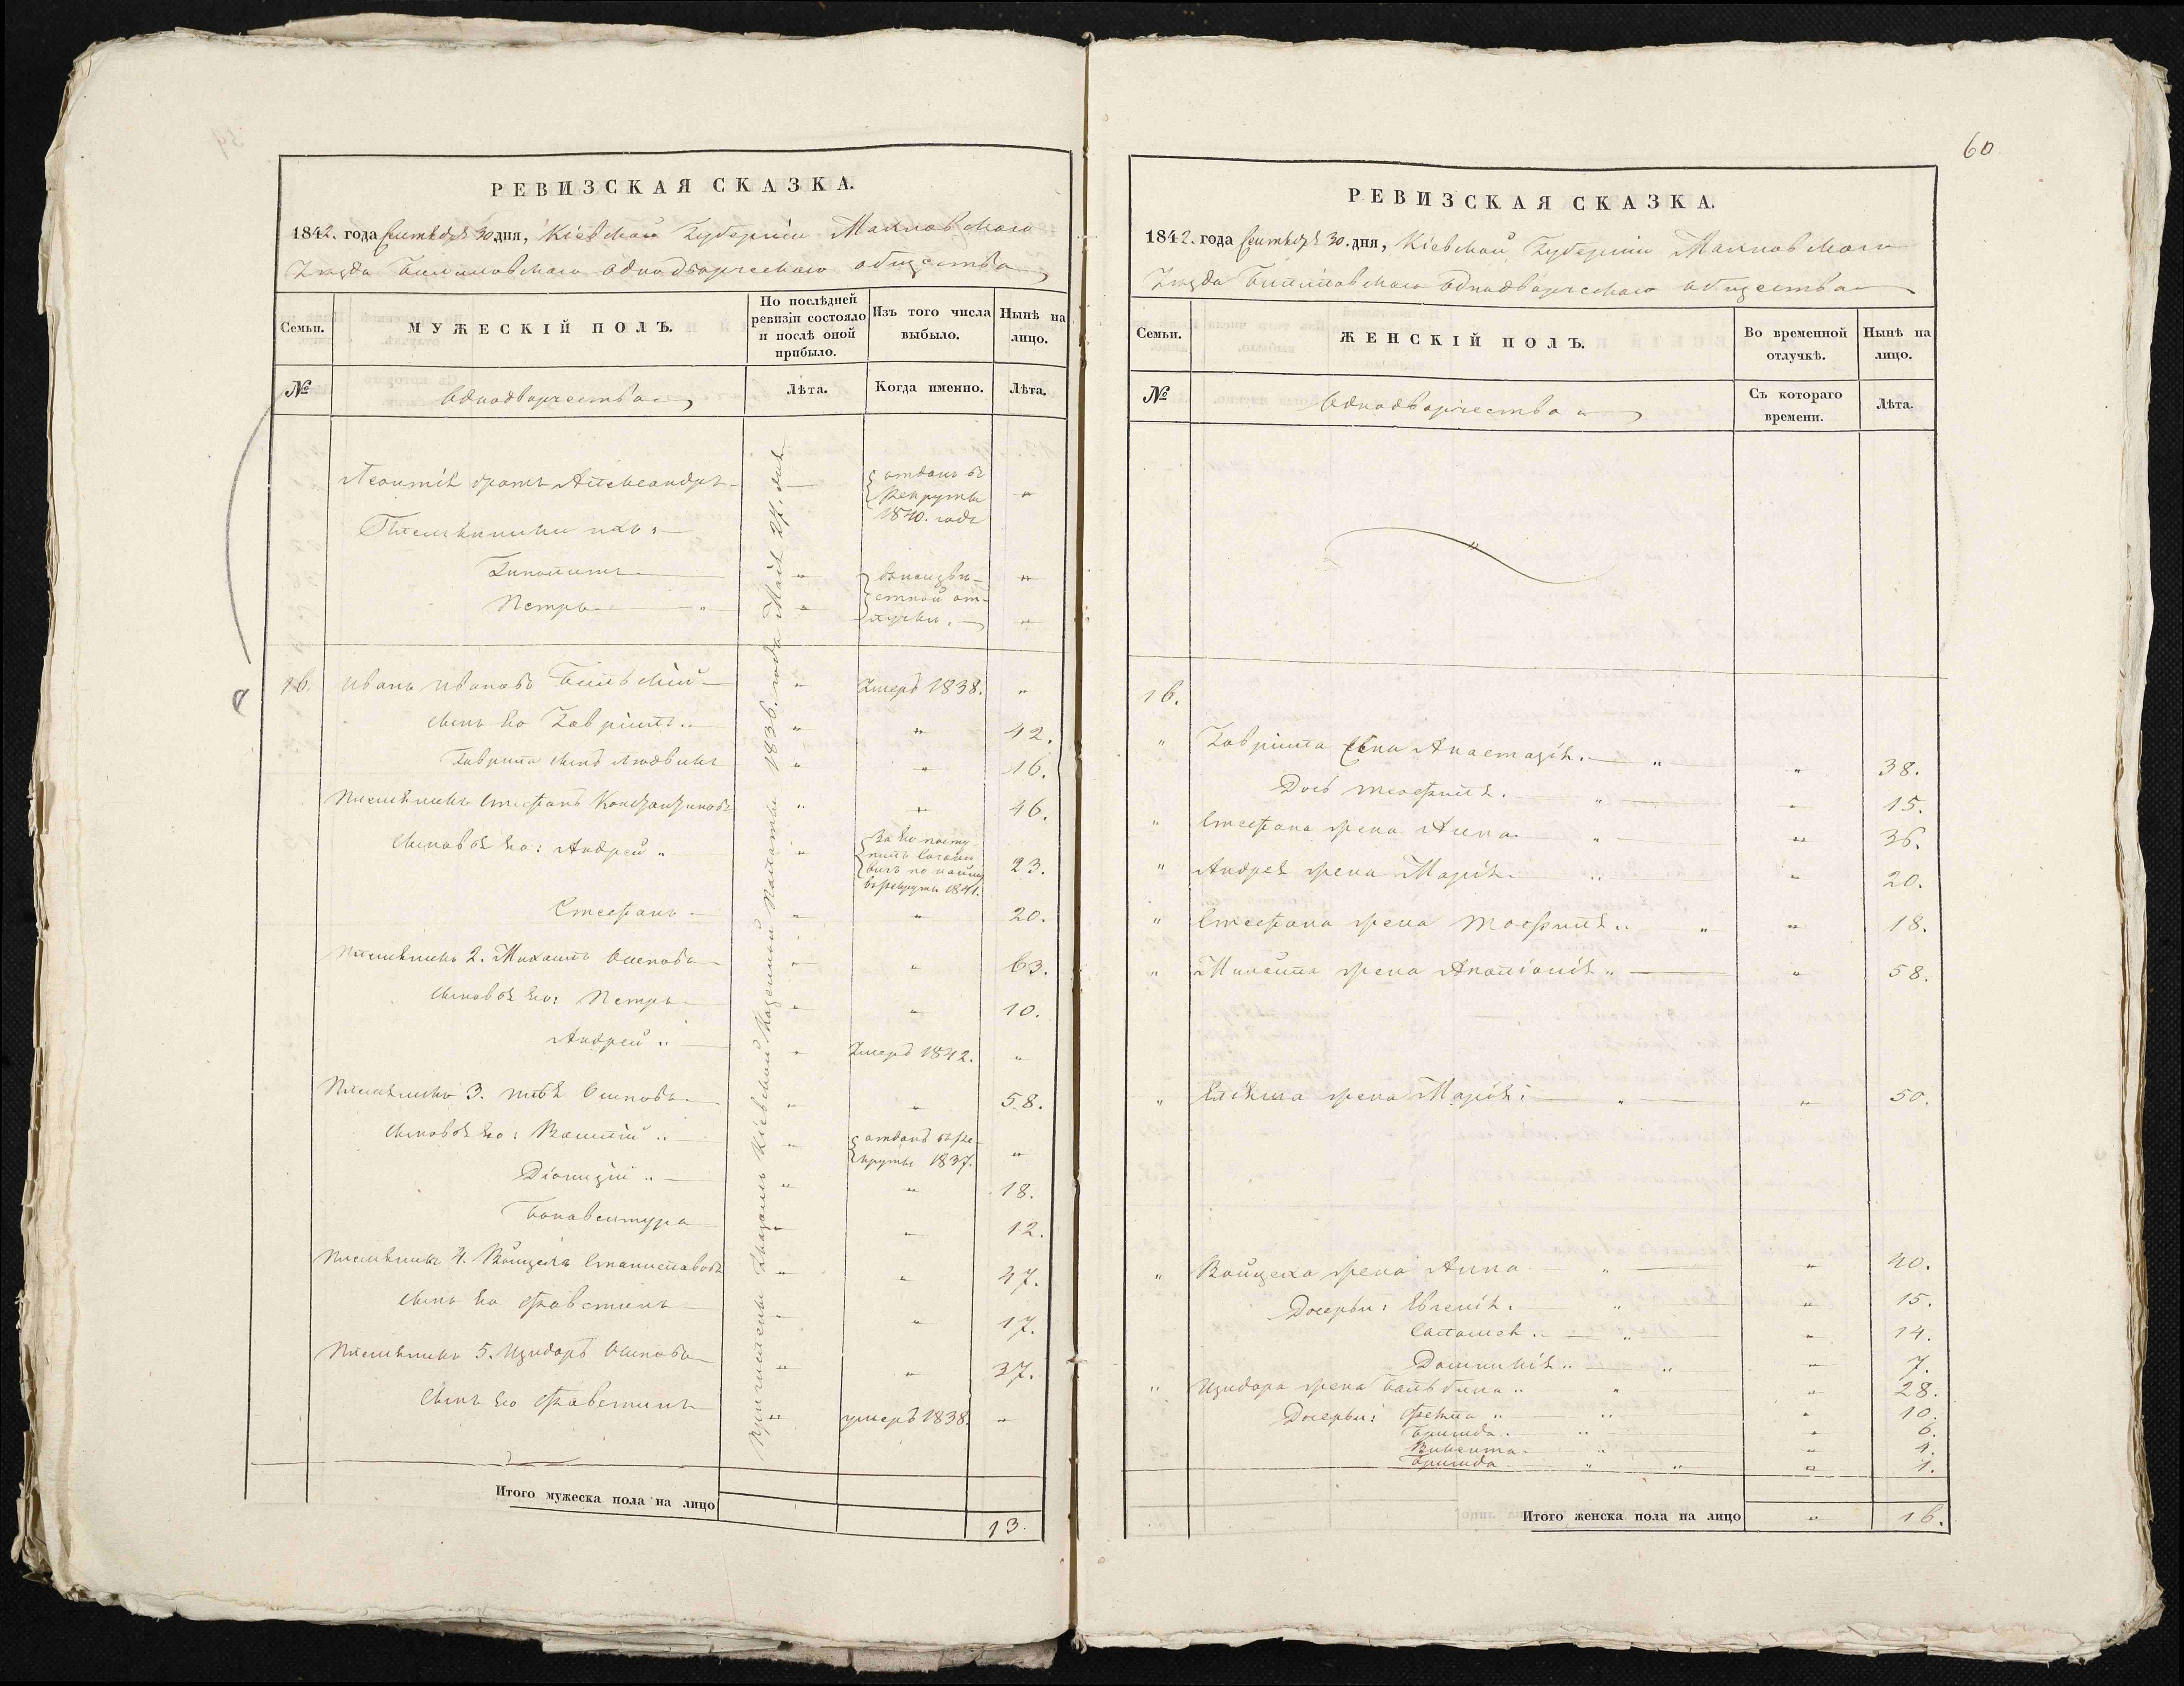 РЕВИЗСКАЯ СКАЗКА.
1842. года Сентября 30 дня, Кіевской Губерніи Махновскаго
Уѣзда Билиловскаго однодворческаго общества
Семьи.
МУЖЕСКІЙ ПОЛЪ.
По послѣдней ревизіи состояло и послѣ оной прибыло.
Изъ того числа выбыло.
Нынѣ на лицо.
№
Однодворчества
Лѣта.
Когда именно.
Лѣта.
Причислены Указомъ Кіевской Казенной Палаты 1836. года Мая 27. дня
Леонтія братъ Александръ отданъ въ рекруты 1840. года "
Племянники ихъ "
Липолитъ " въ неизвѣстной отлучки. "
Петръ " " "
16. Иванъ Ивановъ Бильскій " Умеръ 1838. "
сынъ Его Гавріилъ " " 42.
Гаврила сынъ Людвикъ " " 16.
Племянникъ Стефанъ Константиновъ " " 46.
сыновья Его: Андрей " " за Его поступилъ по найму въ рекруты 1841. 23.
Стефанъ " " 20.
Племянникъ 2. Михаилъ Осиповъ " " 63.
сыновья Его: Петръ " " 10.
Андрей " " Умеръ 1842. "
Племянникъ 3. Осиповъ " " 58.
сыновья Его: " отданъ въ рекруты 1837. "
Діонизій " " " 18.
Бонавентура " " 12.
Племянникъ 4. Войцехъ Станиславовъ " " 47.
сынъ Его Фавстинъ " " 17.
Племянникъ 5. Изидоръ Осиповъ " " 37.
сынъ Его Фавстинъ " умеръ 1838. "
Итого мужеска пола на лицо 13.
60
РЕВИЗСКАЯ СКАЗКА.
1842. года Сентября 30. дня, Кіевской Губерніи Махновскаго
Уѣзда Билиловскаго Однодворческаго общества
Семьи.
ЖЕНСКІЙ ПОЛЪ.
Во временной отлучкѣ.
Нынѣ на лицо.
№
Однодворчества
Съ котораго времени.
Лѣта.
"
16.
" Гавріила жена Анастазія. " " 38.
Дочь Теофилія. " " 15.
" Стефана жена Анна " " 36.
" Андрея жена Марія " " 20.
" Стефана жена Теофилія " " " 18.
" Михаила жена Аполіонія " " 58.
" жена Марія " " 50.
" Войцеха жена Анна " " 40.
Дочерьи: Евгенія. " " 15.
Саломея " " " 14.
Доминикія " " " 7.
" Изидора жена Бальбина " " " 28.
Дочерьи: " " " 10.
Бригида " " " 6.
Викента " " 4.
Бригида " " " 1.
Итого женска пола на лицо " 16.